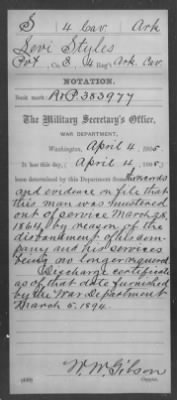 S 4 Cav. Ark
Levi Styles
Pvt., Co. B, 4 Reg't Ark. Cav.
NOTATION.
Book mark: R&P 383977
The Military Secretary's Office,
WAR DEPARTMENT,
Washington, April 4, 1905
It has this day, (April 4, 1905)
been determined by this Department from records
and evidence on file that
this man was mustered
out of service March 28,
1864, by reason of the
disbandment of his com-
pany and his services
being no longer required.
Discharge certificate
as of that date furnished
by the War Department
March 5, 1894.
W. W. Gibson
Copyist.